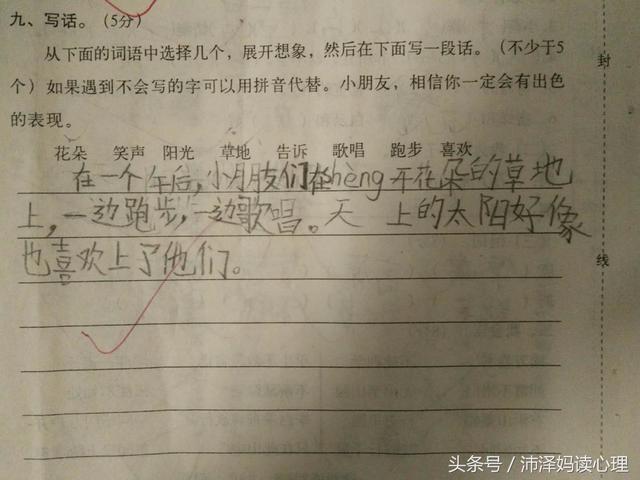 九、写话。(5分)
从下面的词语中选择几个，展开想象，然后在下面写一段话。(不少于5
个) 如果遇到不会写的字可以用拼音代替。小朋友，相信你一定会有出色
的表现。
花朵 笑声 阳光 草地 告诉 歌唱 跑步 喜欢
在一个午后，小朋友们在shèng开花朵的草地
上，一边跑步，一边歌唱。天 上的太阳好像
也喜欢上了他们。
封
线
头条号／沛泽妈读心理